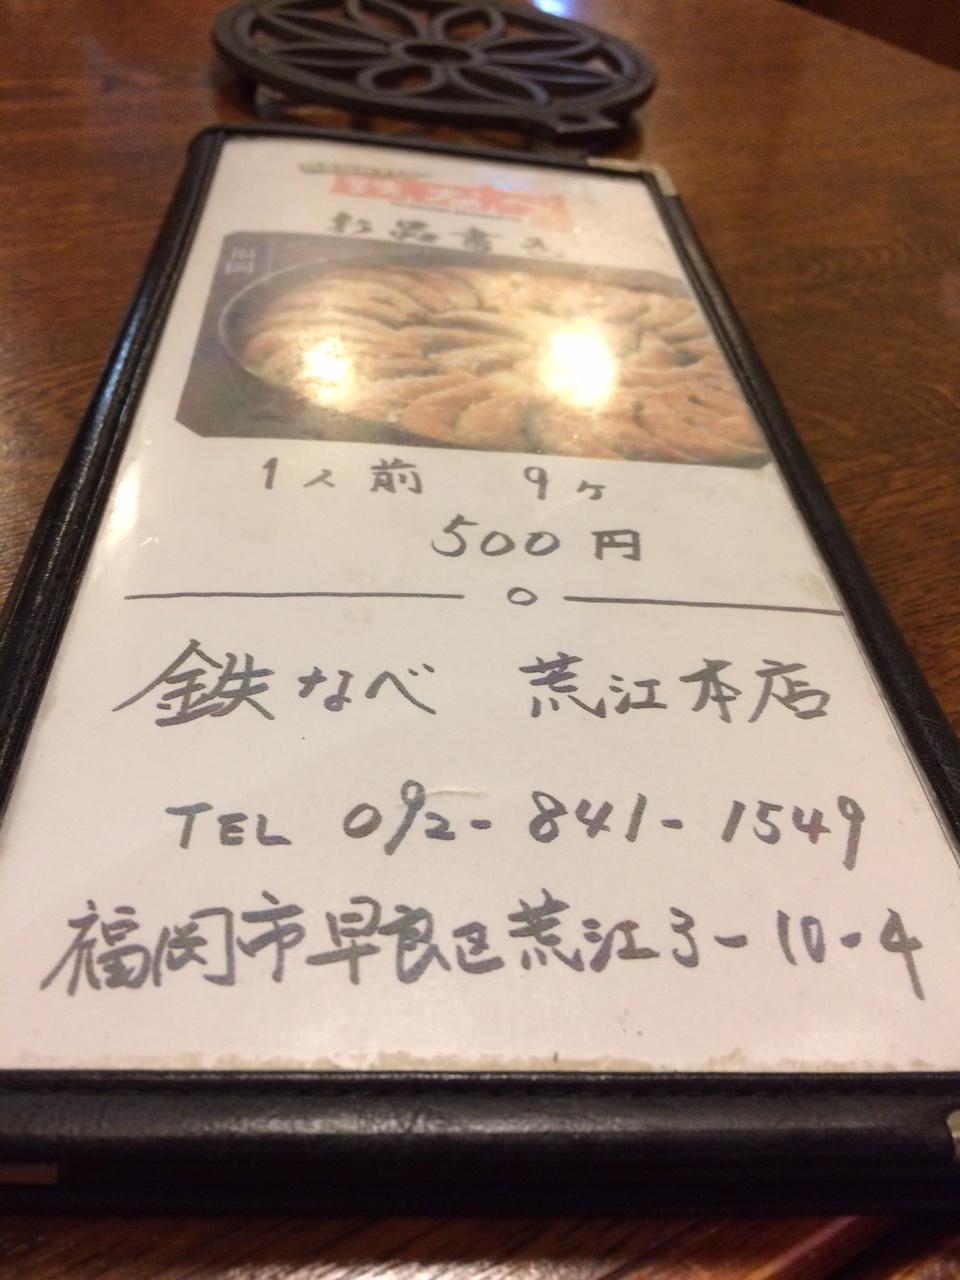 鉄なべ
お品書き
福岡
1人前 9ヶ
500円
鉄なべ 荒江本店
TEL 092-841-1549
福岡市早良区荒江3-10-4